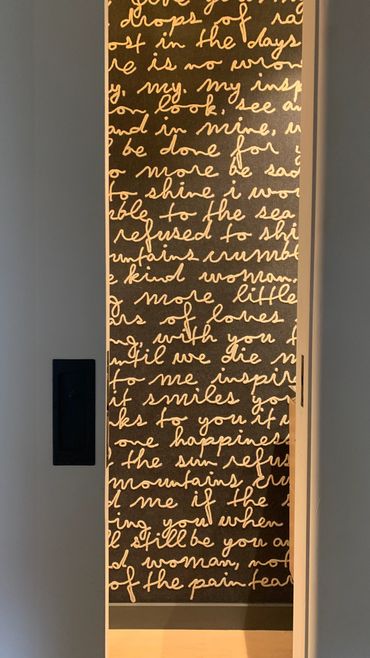 drops of ra
ost in the days
re is no wron
y, my, my insp
on look, see a
and in mine, w
be done for y
o more be sad
to shine i wo
mble to the sea
refused to shi
untains crumbl
e kind woman
g more little
ars of loves
ng, with you
until we die m
to me inspir
it smiles you
ks to you it
one happiness
f the sun refus
mountains cru
d me if the s
ing you when
ll still be you an
d woman, not
of the pain tear